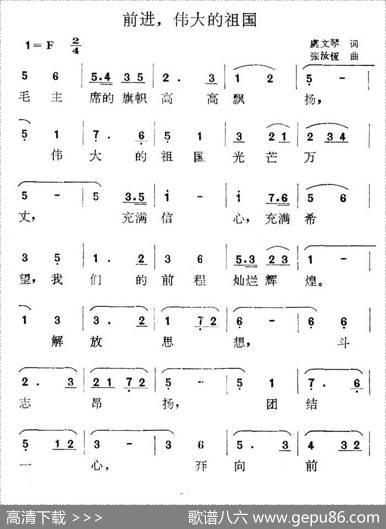 前进，伟大的祖国
1=F 2/4
虞文琴 词
张汝恒 曲
5 6 5.4 3 5 2. 3 1 2 5 -
毛 主 席的旗帜 高 高 飘 扬，
5 1 7. 6 5 1 3 2 1 2 3 4
伟 大 的 祖 国 光 芒 万
5 - 5 3.5 i - i 7.6 5 6
丈， 充满 信 心，充满 希
3 5 1. 2 3 6 5.3 2 3 1 -
望，我 们 的 前 程 灿烂 辉 煌。
1 3 3. 2 1 7 2 6 - 6 6
解 放 思 想， 斗
2. 3 2 1 7 2 5 - 5 1 7. 6
志 昂 扬， 团 结
5 1 2 3 - 3 2 7 2 4 3 2
一 心， 奔 向 前
高清下载 >>>
歌谱八六 www.gepu86.com